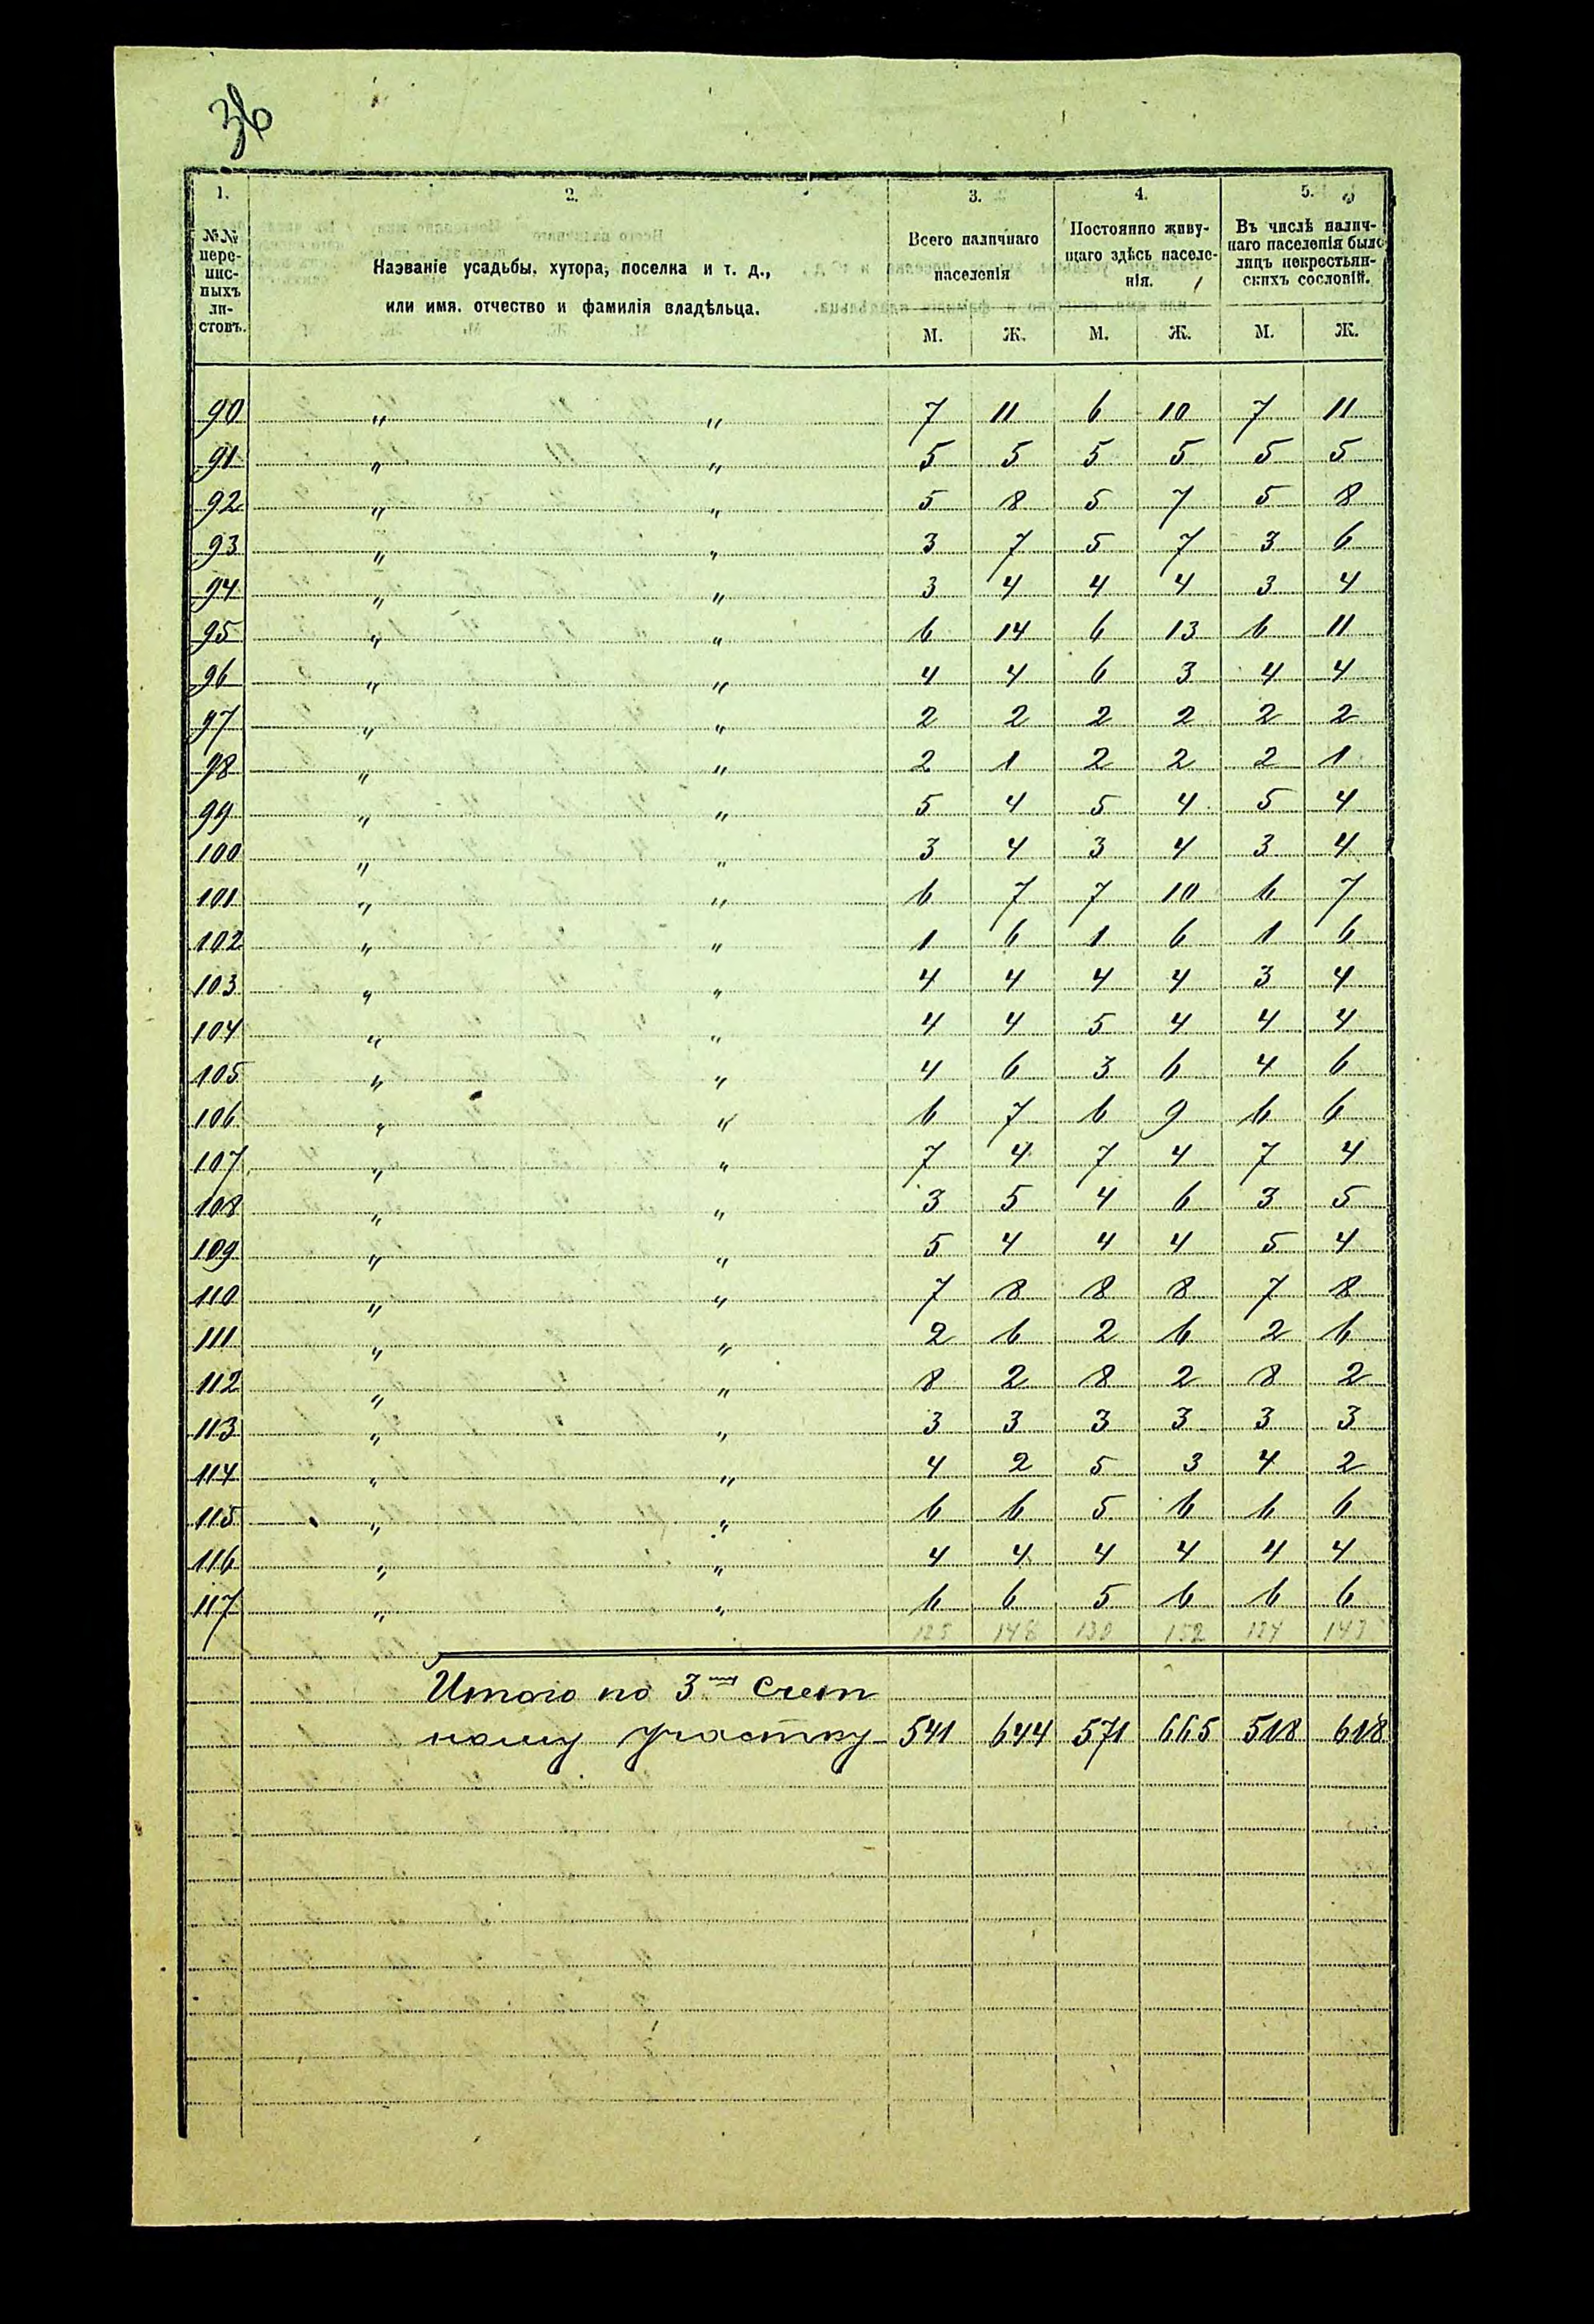 36
1. 2. 3. 4. 5.
№№ пере-
пис-
ныхъ
ли-
стовъ.
Названіе усадьбы, хутора, поселка и т. д.,
или имя, отчество и фамилія владѣльца.
Всего наличнаго
населенія
Постоянно живу-
щаго здѣсь населе-
нія.
Въ числѣ налич-
наго населенія было
лицъ некрестьян-
скихъ сословій.
М. Ж. М. Ж. М. Ж.
90 " " 7 11 6 10 7 11
91 " " 5 5 5 5 5 5
92 " " 5 8 5 7 5 8
93 " " 3 7 5 7 3 6
94 " " 3 4 4 4 3 4
95 " " 6 14 6 13 6 11
96 " " 4 4 6 3 4 4
97 " " 2 2 2 2 2 2
98 " " 2 1 2 2 2 1
99 " " 5 4 5 4 5 4
100 " " 3 4 3 4 3 4
101 " " 6 7 7 10 6 7
102 " " 1 6 1 6 1 6
103 " " 4 4 4 4 3 4
104 " " 4 4 5 4 4 4
105 " " 4 6 3 6 4 6
106 " " 6 7 6 9 6 6
107 " " 7 4 7 4 7 4
108 " " 3 5 4 6 3 5
109 " " 5 4 4 4 5 4
110 " " 7 8 8 8 7 8
111 " " 2 6 2 6 2 6
112 " " 8 2 8 2 8 2
113 " " 3 3 3 3 3 3
114 " " 4 2 5 3 4 2
115 " " 6 6 5 6 6 6
116 " " 4 4 4 4 4 4
117 " " 6 6 5 6 6 6
125 148 130 152 124 143
Итого по 3му Счет
ному участку 541 644 571 665 518 618